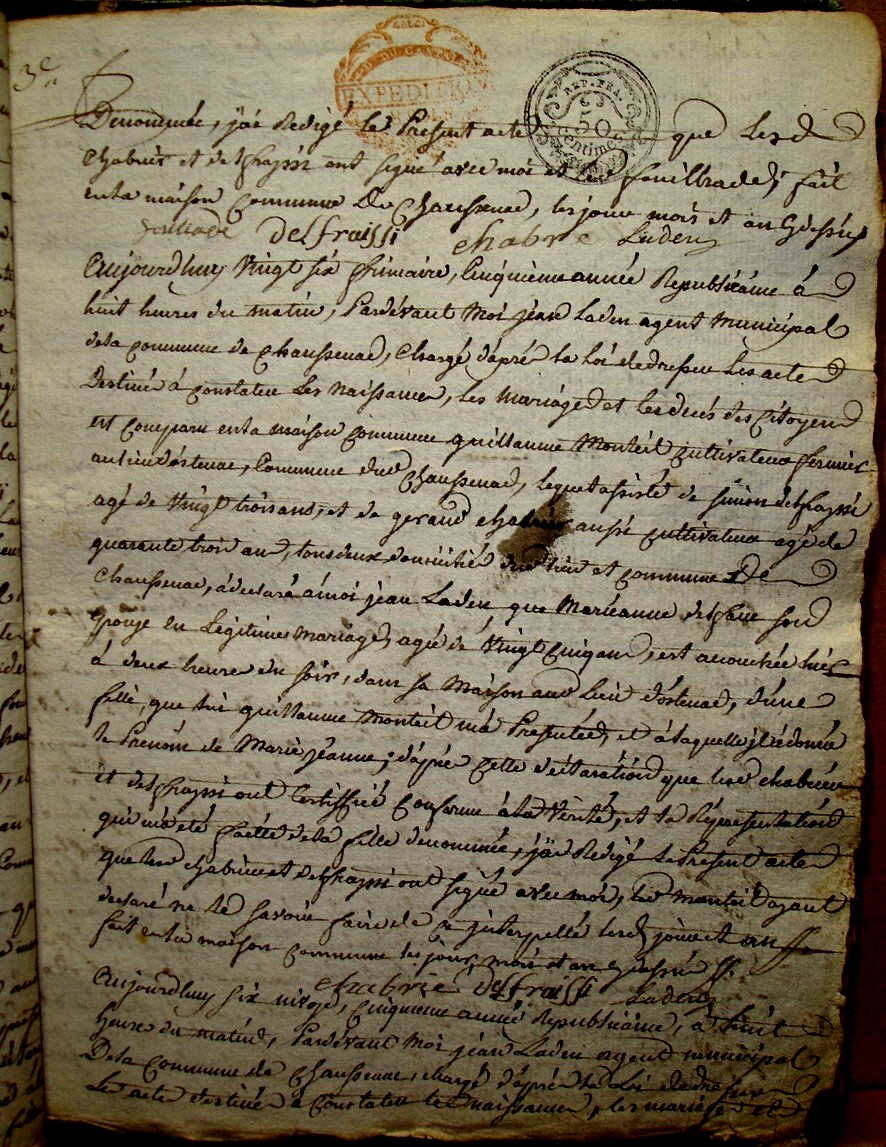 3e
EXPEDITION
REP. FRA.
50
centimes
Denommée, j'ai Redigé le Present acte que lesd
Chabrier et delfraissi ont signé avec moi et feuilhade; fait
en la maison Commune De Chaussenac, les jour mois et an susdis
delfraissi chabrie Laden
Aujourdhuy Vingt six frimaire, Cinquieme année Republicaine á
huit heures du matin, Pardevant Moi jean Laden agent Municipal
de la Commune de Chaussenac, Chargé d'après la Loi de dresser les actes
Destinés á Constater Les Naissances, Les Mariages et les decés des Citoyens
est Comparu en la maison Commune guillaume Monteil Cultivateur fermier
au lieu d'ostenac, Commune dud Chaussenac, lequel assisté de simon delfraissi
agé de Vingt trois ans, et de gerand chabrier aussi Cultivateur agé de
quarante trois ans, tous deux domiciliés dud lieu et Commune De
Chaussenac, á declaré á moi jean Laden que Marieanne son
Epouse en Légitime Mariage, agée de Vingt Cinq ans, est accouchée hier
á deux heures du soir, dans sa Maison aud Lieu d'ostenac, d'une
fille, que lui guillaume Monteil m'a Presentée, et á laquelle jl á donné
le Prenom de Marie jeanne; d'après Cette déclaration que lesd chabrier
et delfraissi ont Certiffiée Conforme á la Vérité, et la Représentation
qui m'a été faitte de la fille denommée, j'ai Redigé le Present acte
que lesd chabrier et delfraissi ont signé avec moi, led monteil ayant
declaré ne le savoir faire de ce jnterpellé lesd jour et an
fait en la maison Commune les jour, mois et an susdis
chabrie delfraissi Laden
Aujourdhuy six nivose, Cinquieme année Republicaine, á huit
heures du matin, Pardevant Moi jean Laden agent municipal
De la Commune de Chaussenac, chargé d'après la Loi de dresser
Les actes destinés á Constater les naissances, les mariages et